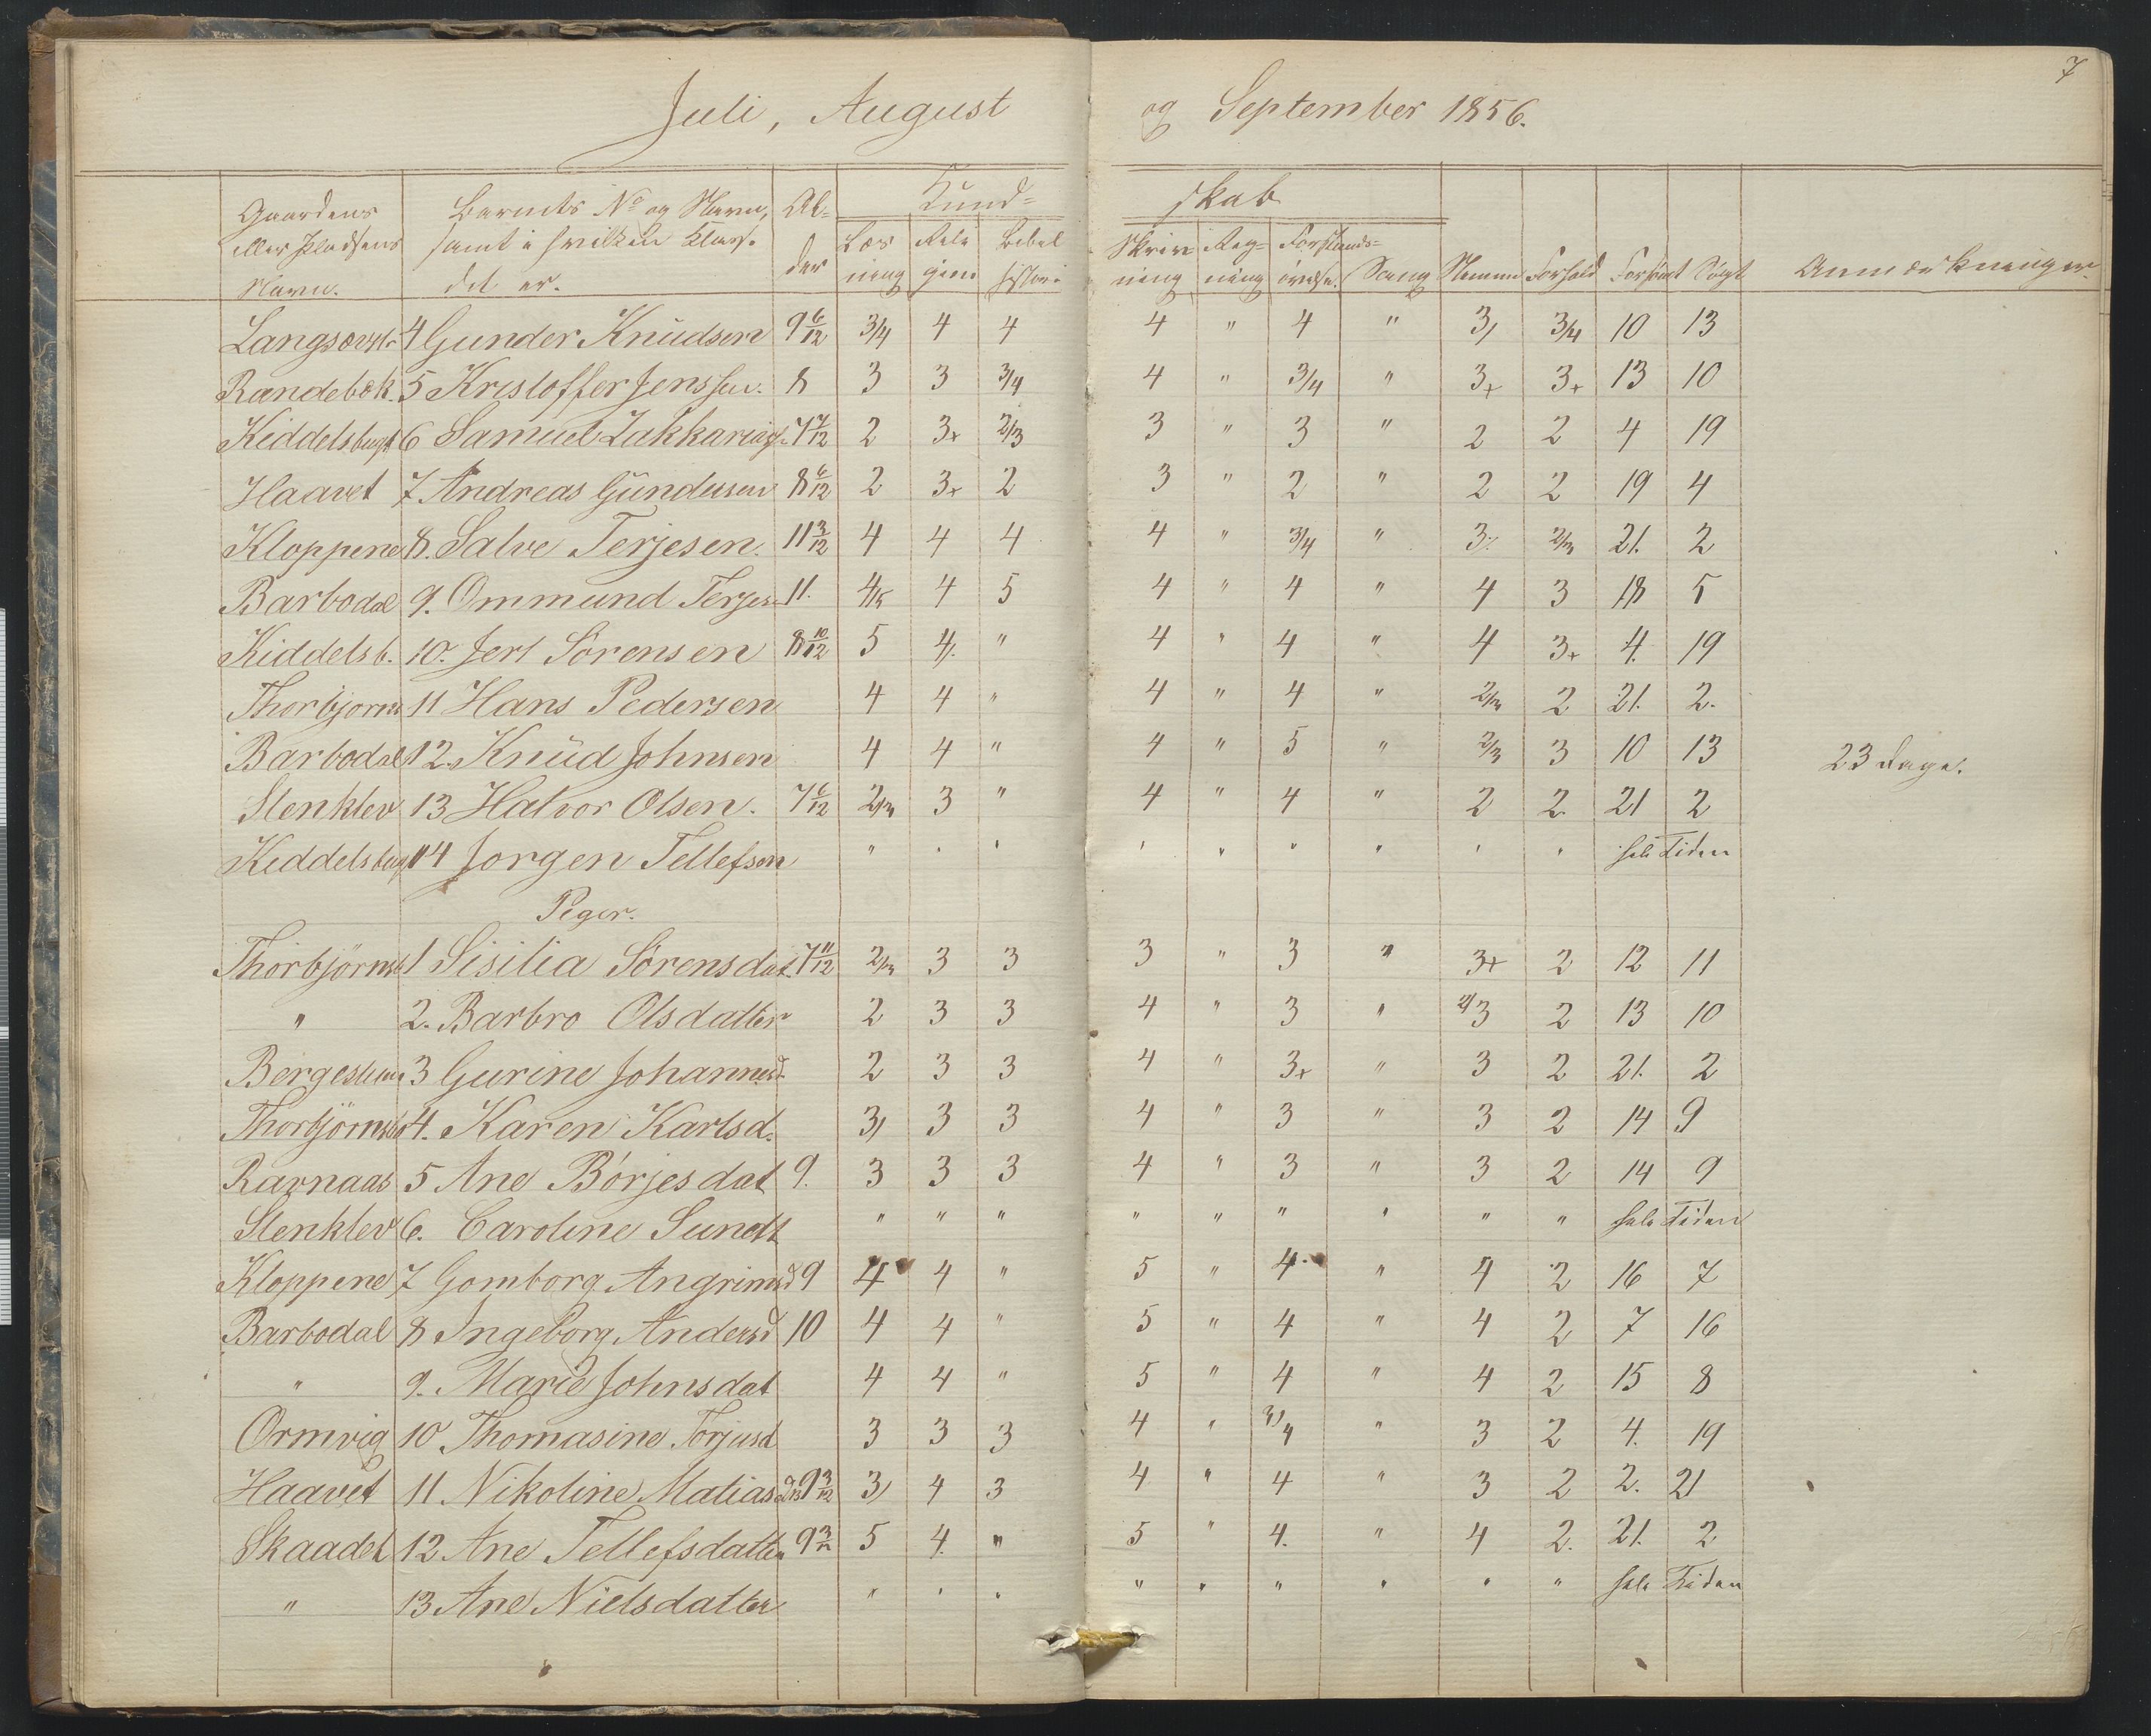 7
Juli, August og September 1856.
Gaardens eller Pladsens Navn. Barnets No og Navn, samt i hvilken Klasse det er. Al-der Kund-skab
Læsning Religion Bibelhistorie Skrivning Regning Forstandsøvelse. Sang Nemme Forhold Forsømt Søgt Anmærkninger
4 Gunder Knudsen 9 6/12 3/4 4 4 4 " 4 " 3/ 3/4 10 13
Randebøk. 5 Kristoffer Jenssen. 8 3 3 3/4 4 " 3/4 " 3+ 3+ 13 10
Kiddelsbugt 6 Samuel Zakkarias. 7 7/12 2 3+ 2/3 3 " 3 " 2 2 4 19
Haavet 7 Andreas Gundersen 8 6/12 2 3+ 2 3 " 2 " 2 2 19 4
Kloppene 8. Salve Terjesen. 11 3/12 4 4 4 4 " 3/4 " 3 2/3 21. 2
Barbodal 9. Ommund Terjesen 11. 4/5 4 5 4 " 4 " 4 3 18 5
Kiddelsb. 10. Jerl Sørensen 8 10/12 5 4/. " 4 " 4 " 4 3+ 4. 19
Thorbjørns 11 Hans Pedersen 4 4 " 4 " 4 " 2/3 2 21. 2.
Barbodal 12. Knud Johnsen 4 4 " 4 " 5 " 2/3 3 10 13 23 Dage.
Stenklev 13 Halvor Olsen. 7 6/12 2/3 3 " 4 " 4 " 2 2. 21 2
Kiddelsbugt 14 Jørgen Tellefsen " " " " " " " " " hele Tiden
Piger.
Thorbjørnsb 1 Sisilia Sørensdat 7 11/12 2/3 3 3 3 " 3 " 3+ 2 12 11
" 2. Barbro Olsdatter 2 3 3 4 " 3 " 2/3 2 13 10
3 Gurine Johannesd. 2 3 3 4 " 3+ " 3 2 21. 2
Thorbjørnsb 4. Karen Karlsd. 3/ 3 3 4 " 3 " 3 2 14 9
Ravnaas 5 Ane Børjesdat 9. 3 3 3 4 " 3 " 3 2 14 9
Stenklev 6. Caroline Sundt " " " " " " " " " hele Tiden
Kloppene 7 Gomborg Angrimsd 9 4 4 " 5 " 4. " 4 2 16 7
Barbodal 8 Ingeborg Andersd 10 4 4 " 5 " 4 " 4 2 7 16
" 9. Marie Johnsdat 4 4 " 5 " 4 " 4 2 15 8
Ormvig 10 Thomasine Torjusd 3 3 3 4 " 3/4 " 3 2 4. 19
Haavet 11 Nikoline Matiasd 9 3/12 3/ 4 3 4 " 4 " 3 2 2. 21
Skaadet 12 Ane Tellefsdatter 9 3/12 5 4. " 5 " 4. " 4 2. 21. 2
" 13 Ane Nielsdatter " " " " " " " " " hele Tiden